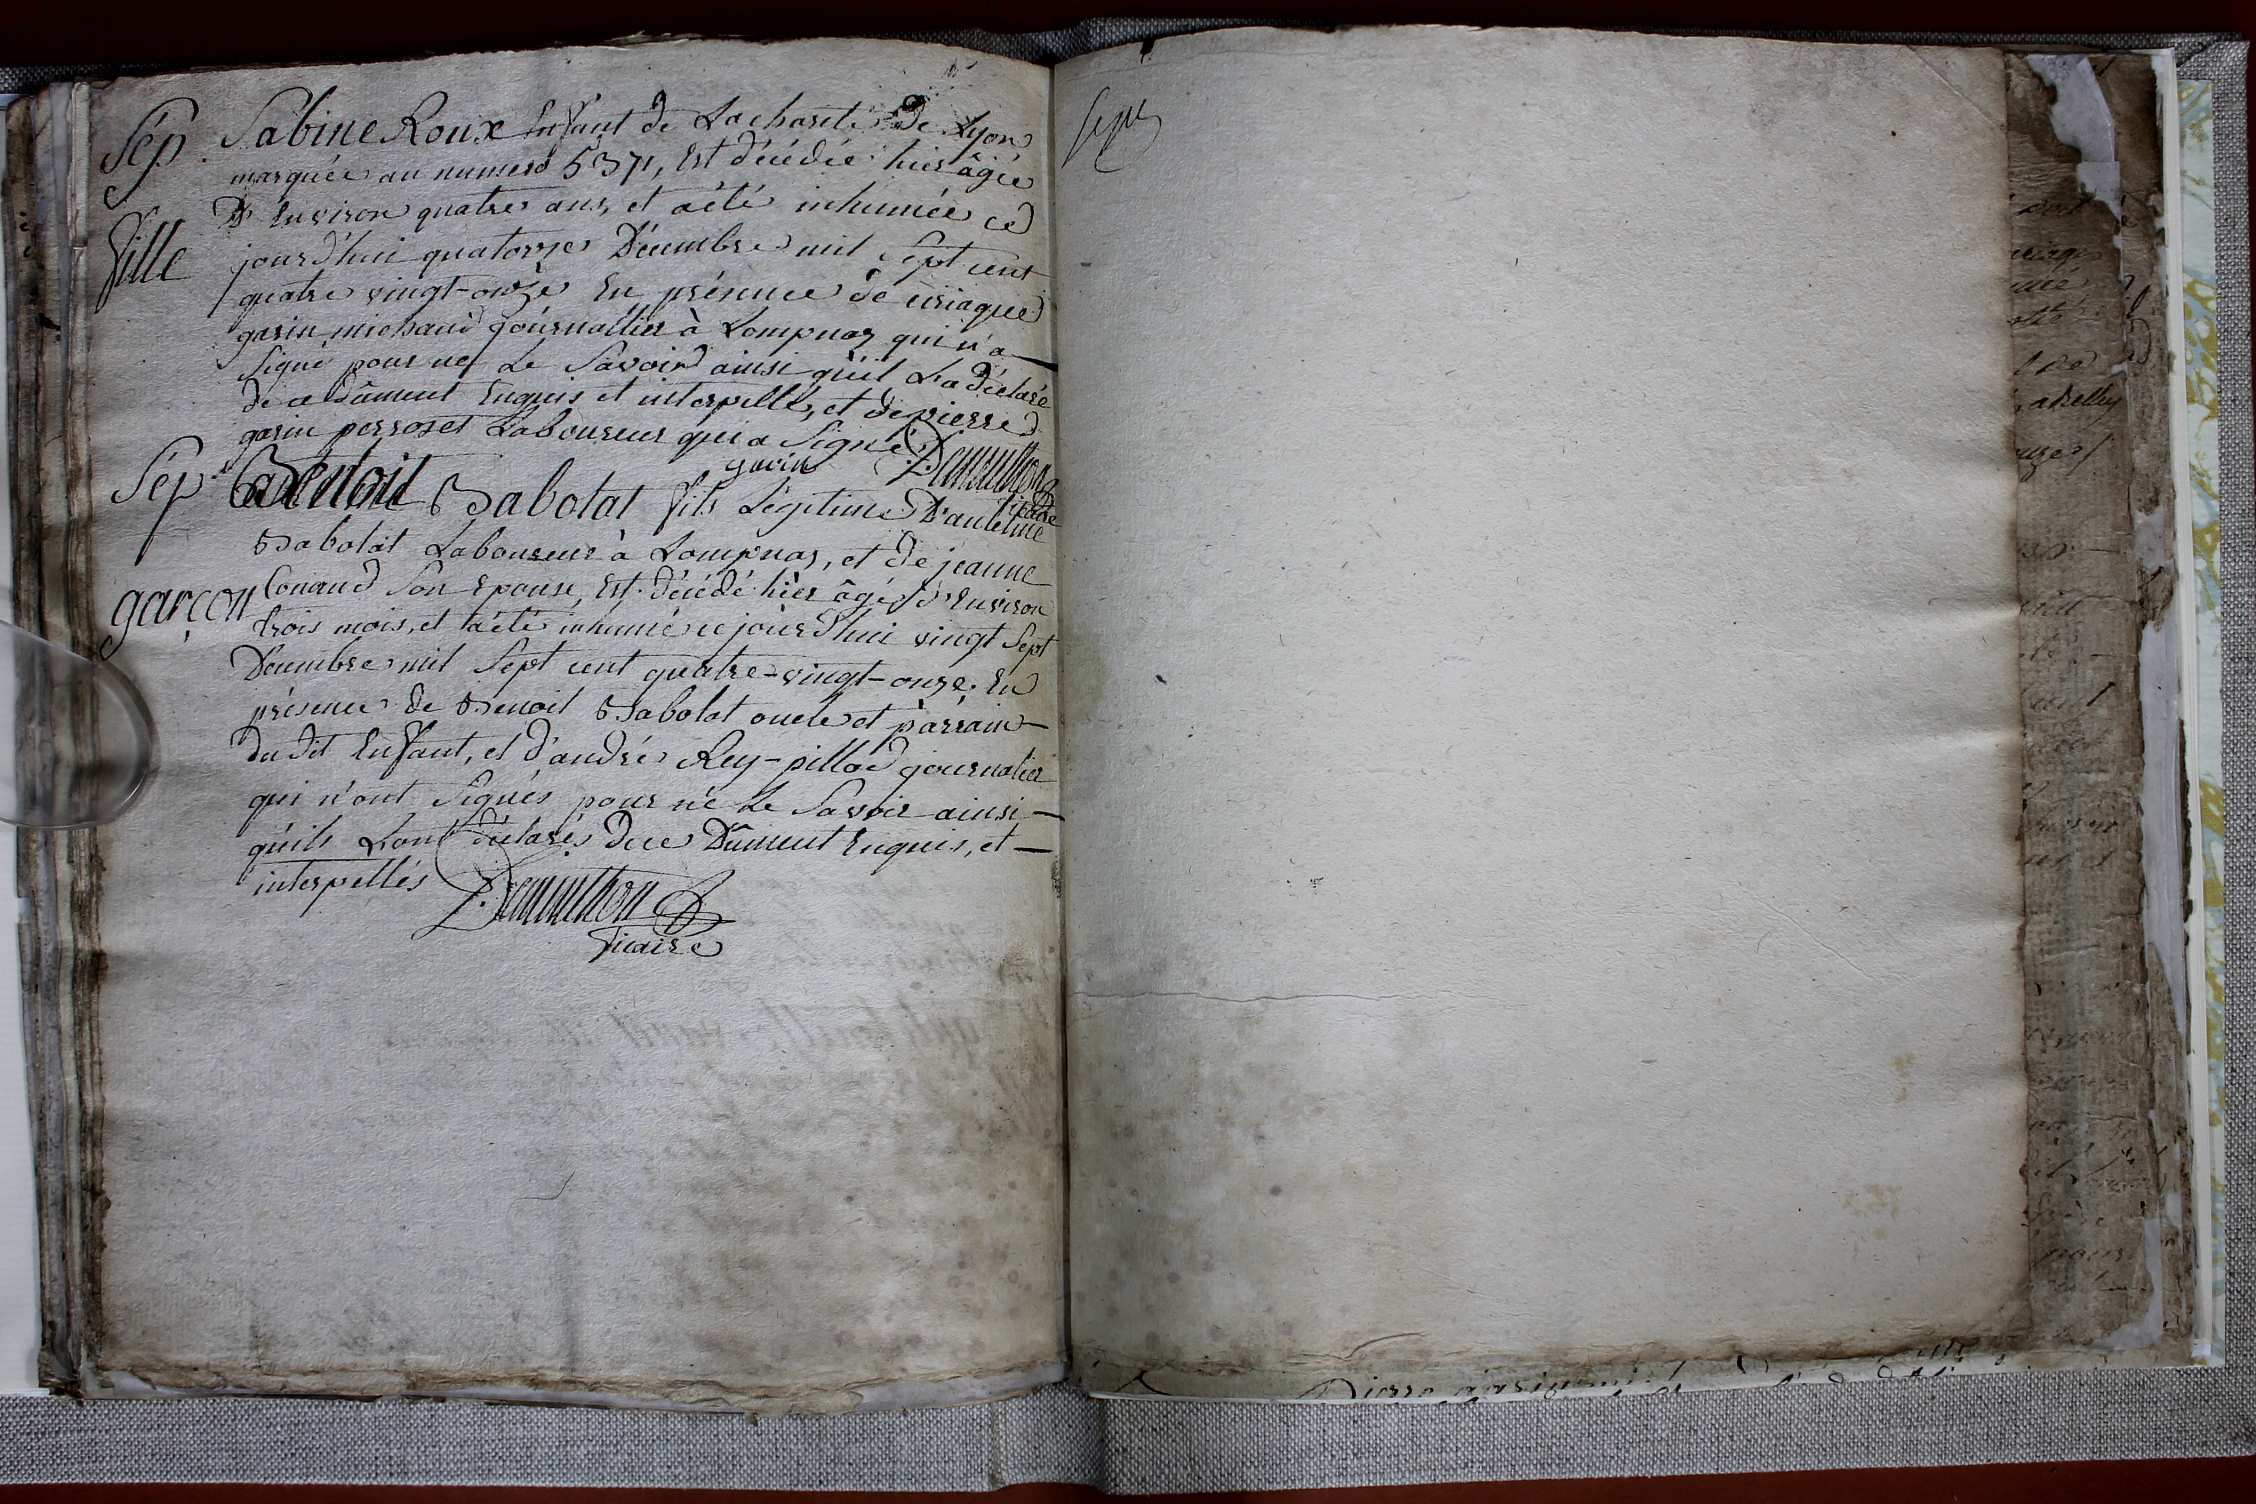 Sép. Sabine Roux Enfant de La charité De Lyon
marquée au numero 5371, Est décédée hier âgée
D'Environ quatre ans, et a été inhumée ce
fille jourd'hui quatorze Décembre mil Sept cent
quatre vingt-onze En présence de ciriaque
garin michaud journallier à Lompnas qui n'a
Signé pour ne Le Savoir ainsi qu'il L'a déclaré
de ce Dûment Enquis et interpellé, et de pierre
garin perrozet Laboureur qui a Signé
garin Demuithon
vicaire
Sép.r Benoit Babolat fils Légitime D'antelme
Babolat Laboureur à Lompnas, et De jeanne
garçon Conand Son Epouse, Est décédé hier âgé d'Environ
trois mois, et a été inhumé ce jourd'hui vingt Sept
Décembre mil Sept cent quatre-vingt-onze. En
présence de Benoit Babolat oncle et parrain
du dit Enfant, et d'andré Rey-pillod journalier
qui n'ont Signés pour ne Le Savoir ainsi
qu'ils L'ont déclarés De ce Dûment Enquis, et
interpellés
Demuithon
vicaire